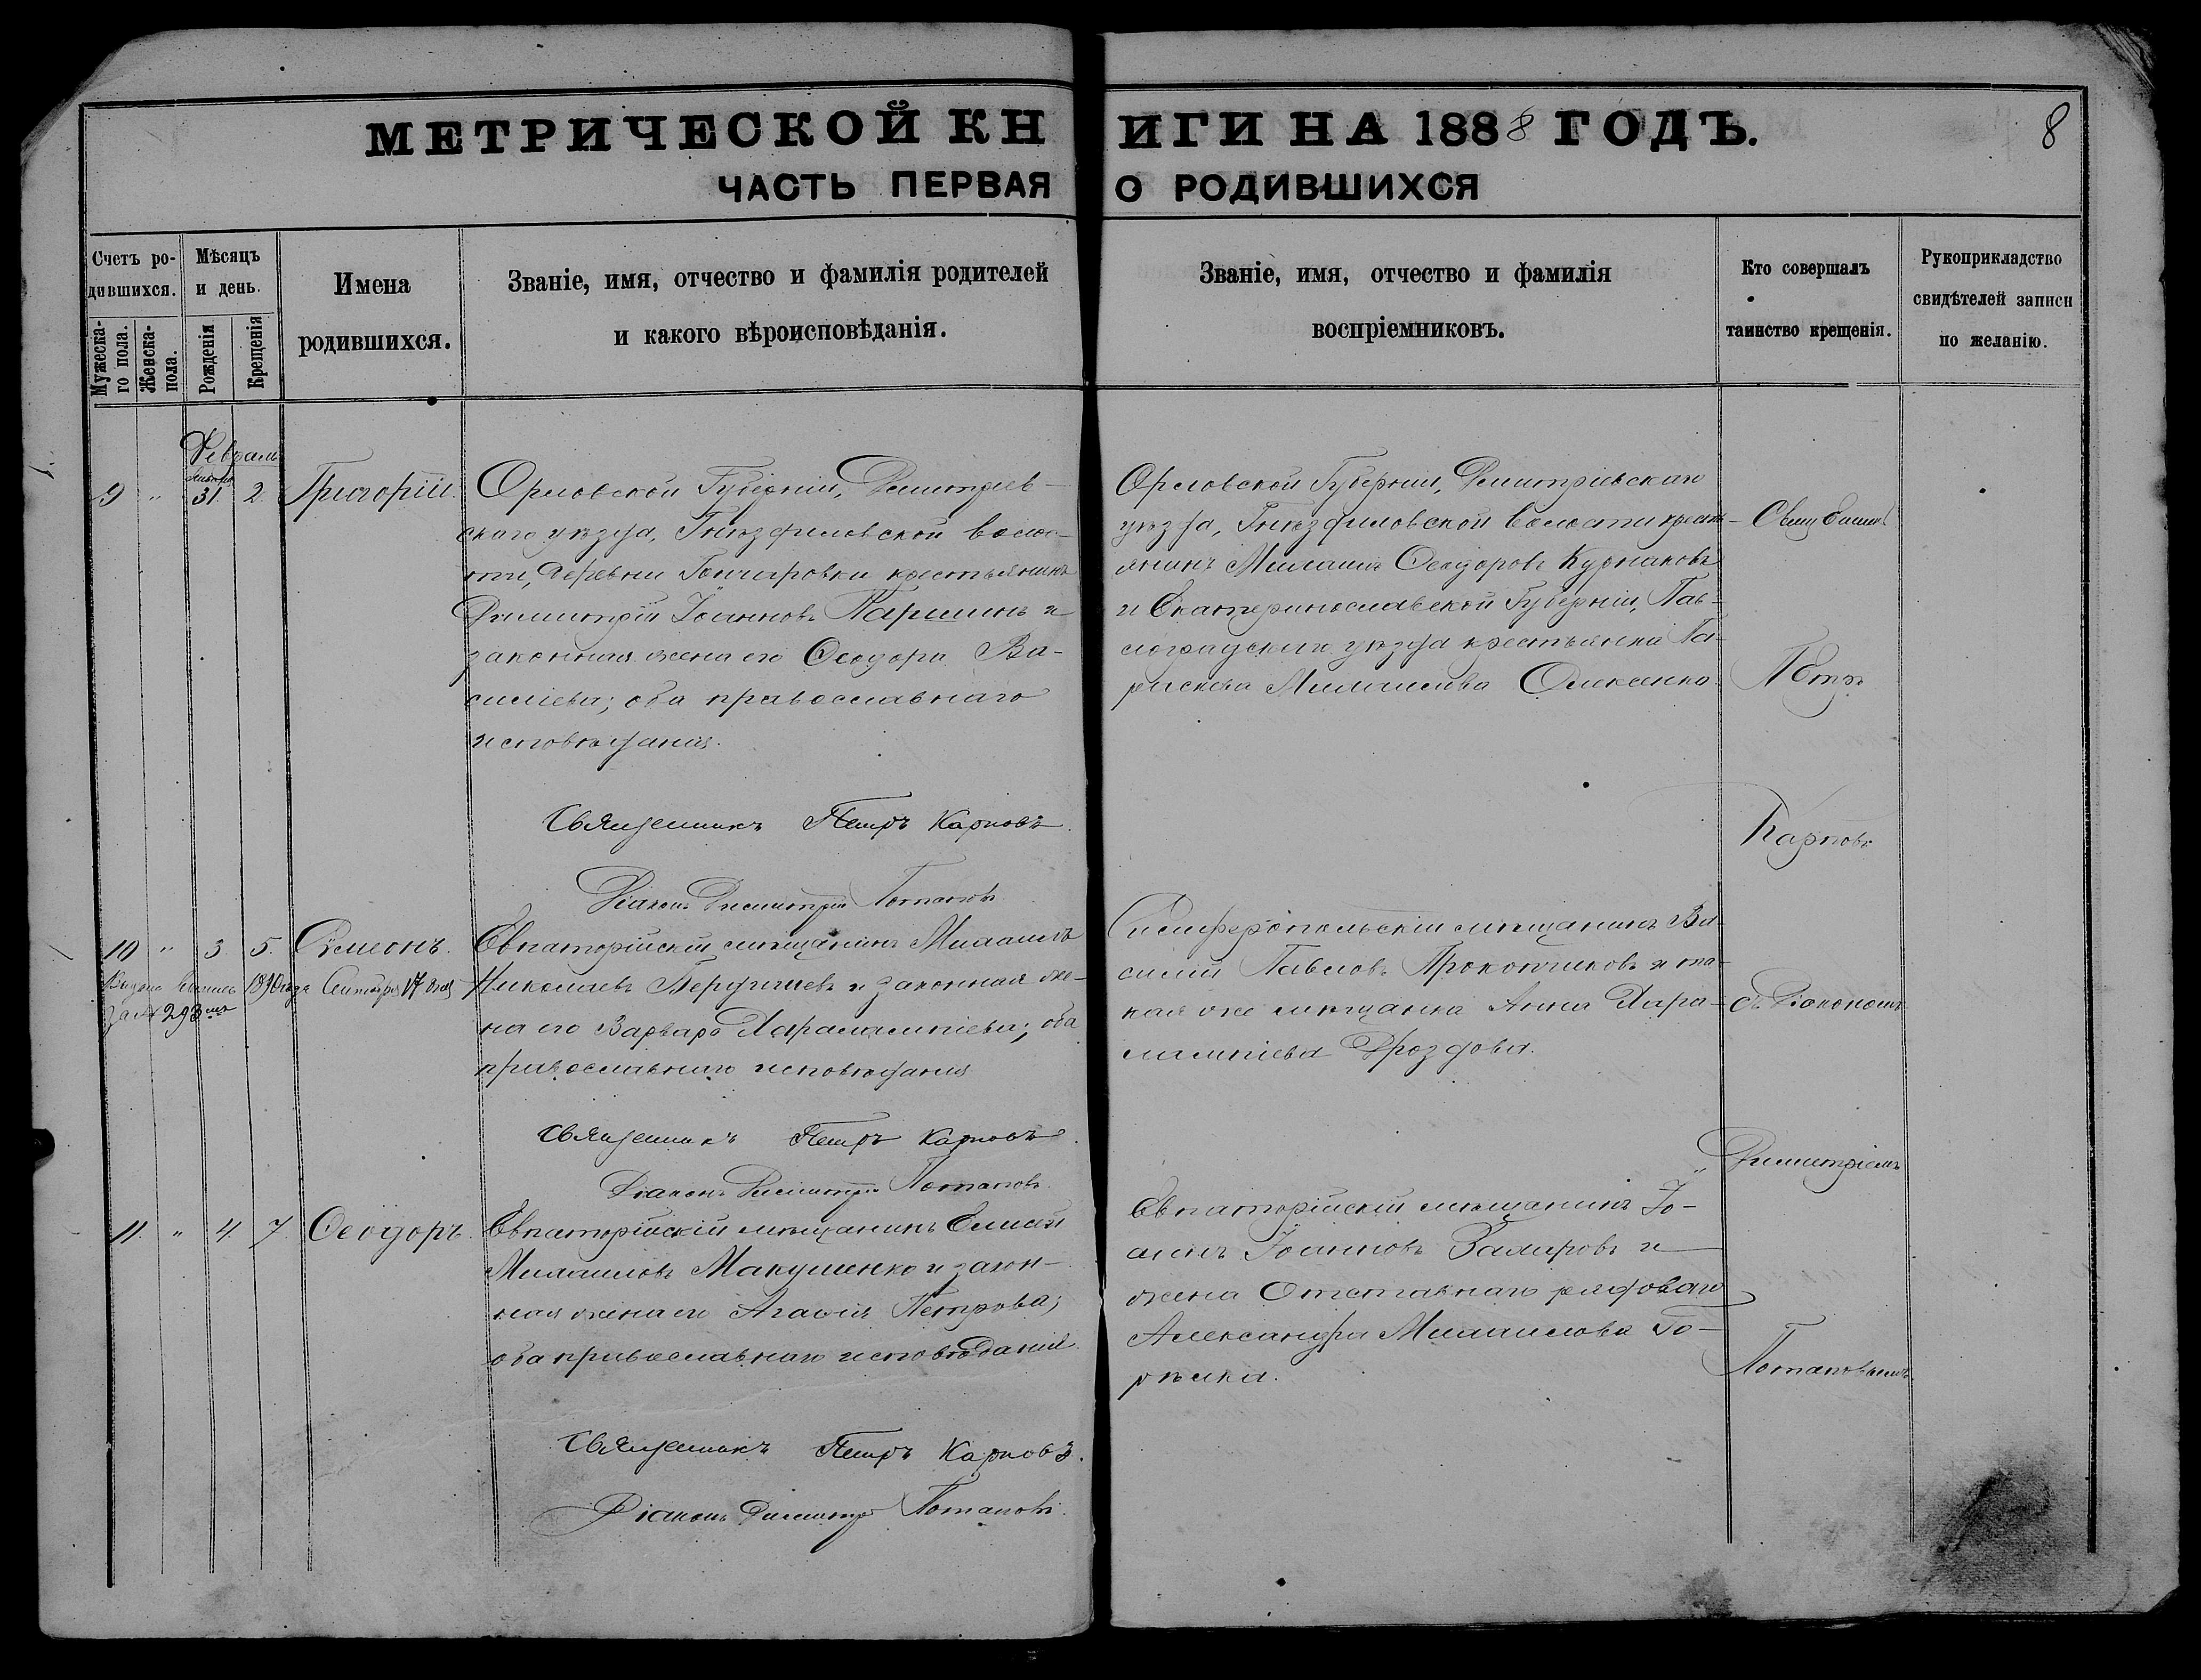 МЕТРИЧЕСКОЙ КНИГИ НА 1888 ГОДЪ.
8
ЧАСТЬ ПЕРВАЯ О РОДИВШИХСЯ
Счетъ ро-
дившихся.
Мужеска-
го пола.
Женска-
пола.
Мѣсяцъ
и день.
Рожденія
Крещенія
Имена
родившихся.
Званіе, имя, отчество и фамилія родителей
и какого вѣроисповѣданія.
Званіе, имя, отчество и фамилія
воспріемниковъ.
Кто совершалъ
таинство крещенія.
Рукоприкладство
свидѣтелей записи
по желанію.
Февраль
Январь
9 " 31 2 Григорій.
Орловской Губерніи, Димитріев-
скаго уѣзда, Гнѣздиловской волос-
ти, деревни Гончаровки крестьянинъ
Димитрій Іоанновъ Паршинъ и
законная жена его Ѳеодора Ва-
силіева; оба православнаго
исповѣданія.
Священникъ Петръ Карповъ.
Діаконъ Димитрій Потаповъ
Орловской Губерніи, Димитріевскаго
уѣзда, Гнѣздиловской волости крест-
янинъ Михаилъ Ѳеодоровъ Курнаковъ
и Екатеринославской Губерніи, Пав-
лоградскаго уѣзда крестьянка Па-
раскева Михаилова Олексенко.
Петръ
Карповъ
10 " 3. 5. Сѵмеонъ.
Выдана 1890 года Сентября 17 дня
за № 293
Евпаторійскій мѣщанинъ Михаилъ
Николаевъ Бердичевъ и законная же-
на его Варвара Харалампіева; оба
православнаго исповѣданія
Священникъ Петръ Карповъ.
Діаконъ Димитрій Потаповъ.
Симферопольскій мѣщанинъ Ва-
силій Павловъ Прокопчиковъ и та-
кая же мѣщанка Анна Хара-
лампіева Дроздова.
съ Діакономъ
Димитріемъ
11. " 4. 7. Ѳеодоръ.
Евпаторійскій мѣщанинъ Елисей
Михаиловъ Макушенко и закон-
ная жена его Агаѳія Петрова;
оба православнаго исповѣданія.
Священникъ Петръ Карповъ.
Діаконъ Димитрій Потаповъ.
Евпаторійскій мѣщанинъ Іо-
аннъ Іоанновъ и
жена Отставнаго рядоваго
Александра Михаилова Го-
рѣлка.
Потаповымъ